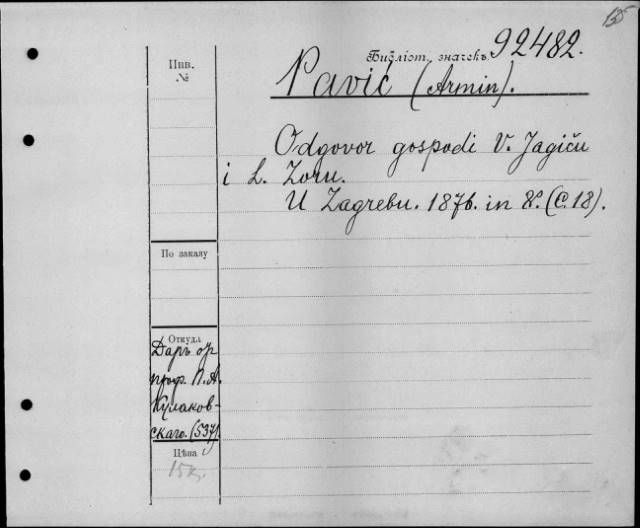 135
Библіот. значекъ 92482.
Инв. №
Pavić (Armin).
Odgovor gospodi V. Jagiču
i L. Zoru.
U Zagrebu. 1876. in 8º. (C. 18).
По заказу
Откуда
Даръ отъ
проф. П. А.
Кулаков-
скаго. (537).
Цѣна
15к.